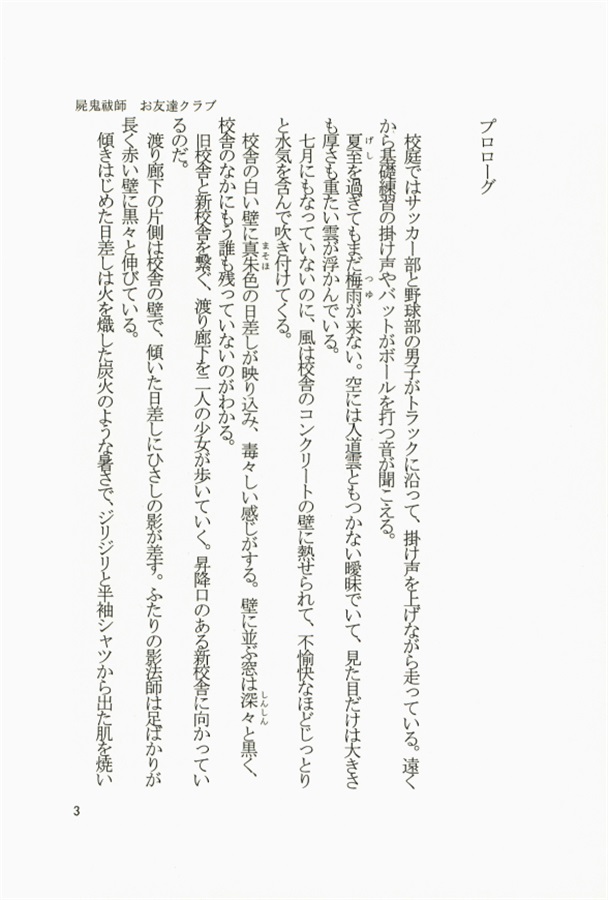 屍鬼祓師　お友達クラブ
プロローグ
校庭ではサッカー部と野球部の男子がトラックに沿って、掛け声を上げながら走っている。遠く
から基礎練習の掛け声やバットがボールを打つ音が聞こえる。
夏至を過ぎてもまだ梅雨が来ない。空には入道雲ともつかない曖昧でいて、見た目だけは大きさ
げし
つゆ
も厚さも重たい雲が浮かんでいる。
七月にもなっていないのに、風は校舎のコンクリートの壁に熱せられて、不愉快なほどじっとり
と水気を含んで吹き付けてくる。
校舎の白い壁に真朱色の日差しが映り込み、毒々しい感じがする。壁に並ぶ窓は深々と黒く、
まそほ
しんしん
校舎のなかにもう誰も残っていないのがわかる。
旧校舎と新校舎を繋ぐ、渡り廊下を二人の少女が歩いていく。昇降口のある新校舎に向かってい
るのだ。
渡り廊下の片側は校舎の壁で、傾いた日差しにひさしの影が差す。ふたりの影法師は足ばかりが
長く赤い壁に黒々と伸びている。
傾きはじめた日差しは火を熾した炭火のような暑さで、ジリジリと半袖シャツから出た肌を焼い
3